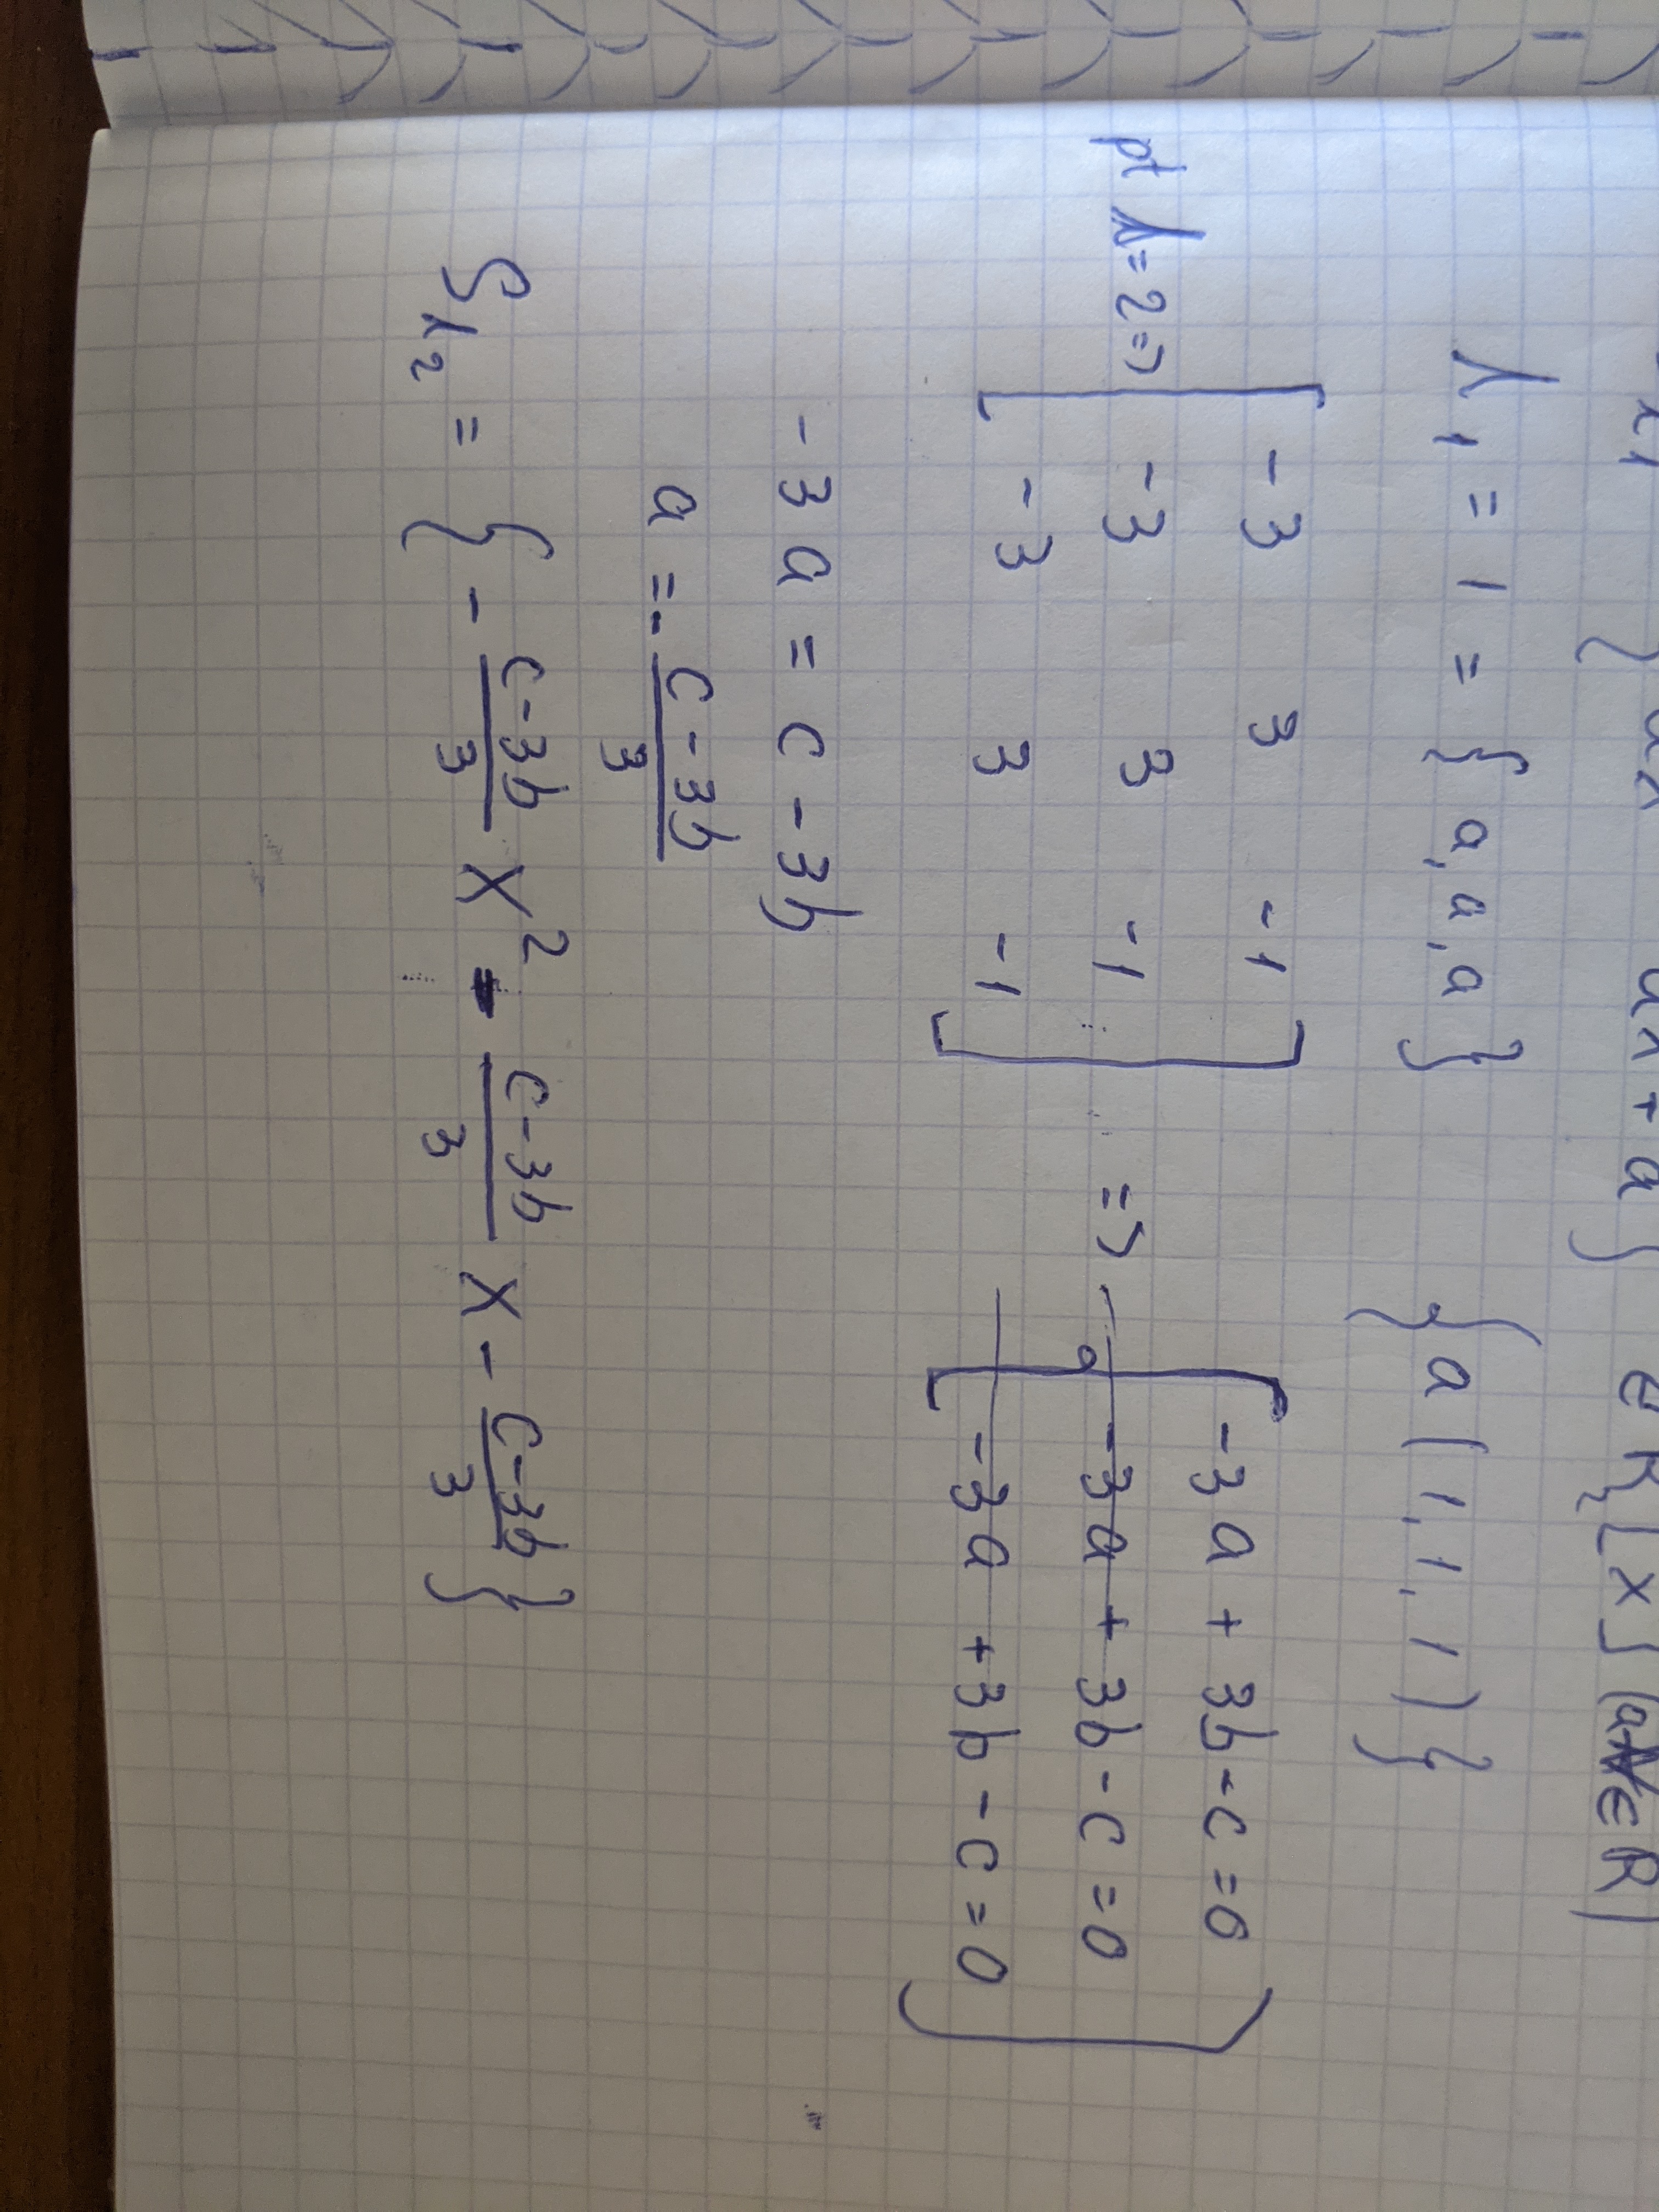 ax + a} ∈ R₂[X] (a ∈ R)
λ₁ = 1 = {a, a, a} {a(1, 1, 1)}
pt λ = 2 => [ -3 3 -1 => { -3a + 3b - c = 0
-3 3 -1 -3a + 3b - c = 0
-3 3 -1 ] -3a + 3b - c = 0 )
-3a = c - 3b
a = - (c - 3b)/3
S_λ₂ = {- (c-3b)/3 X² - (c-3b)/3 X - (c-3b)/3}